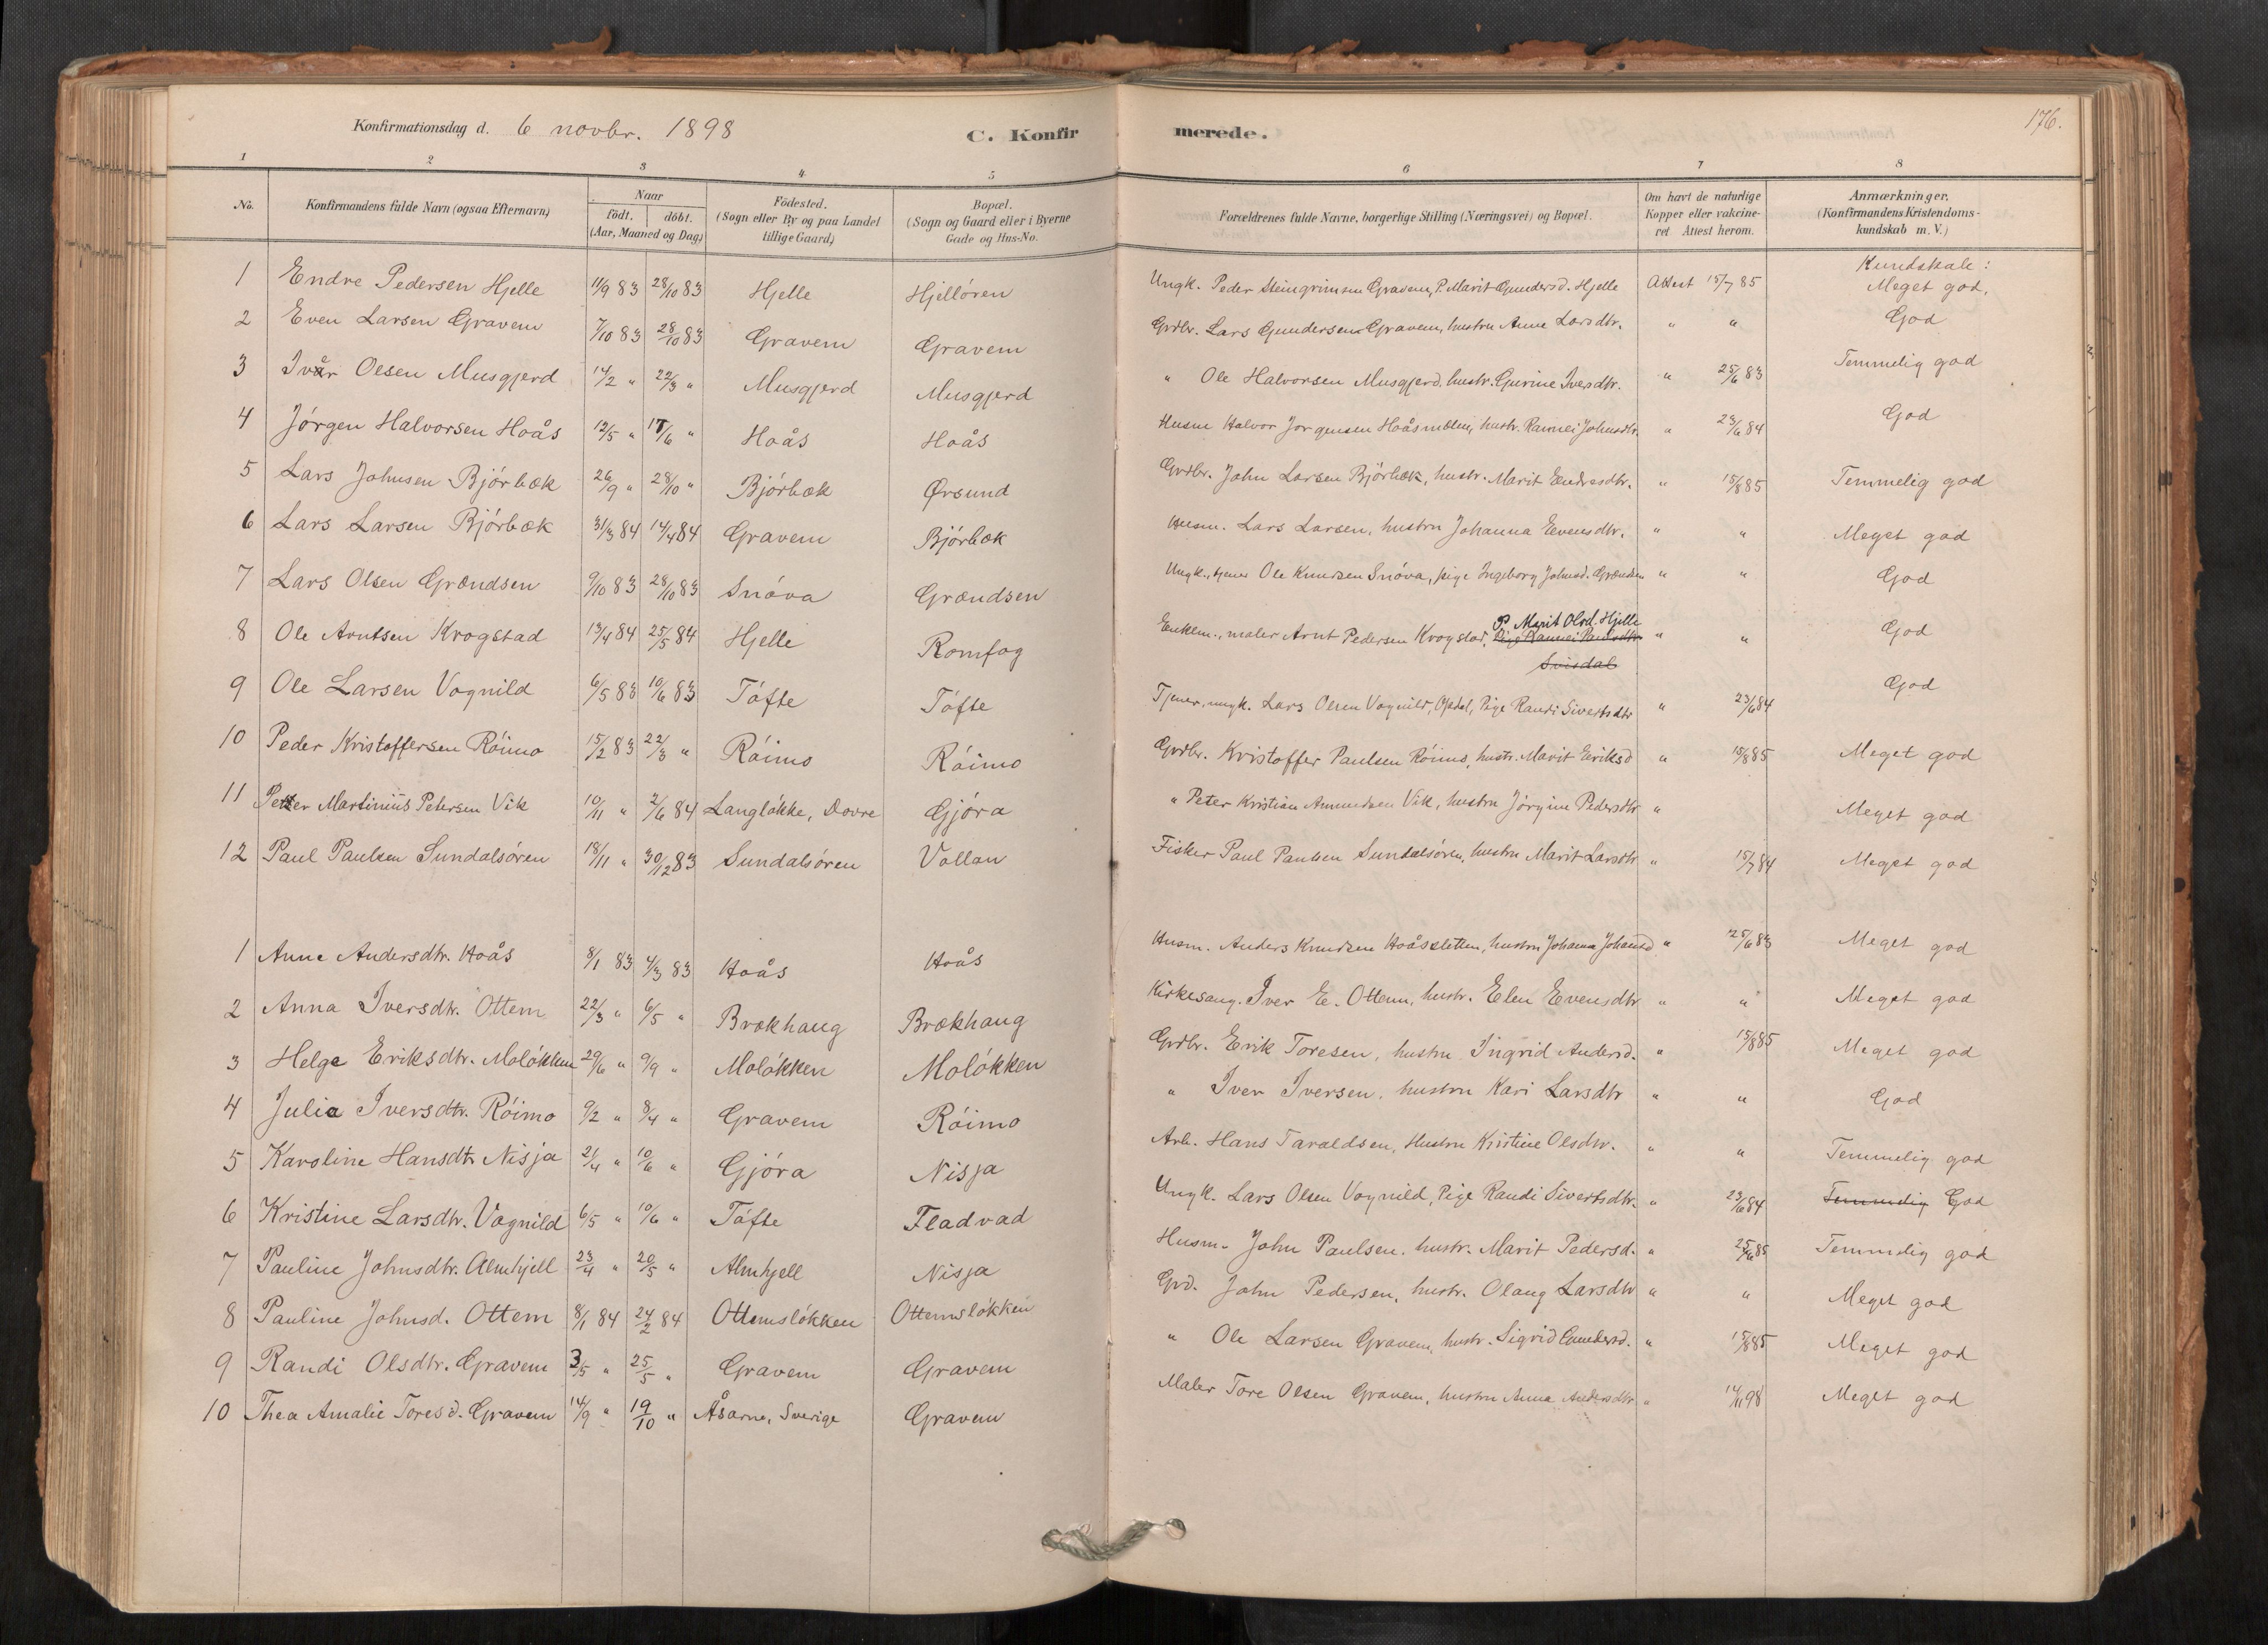 Konfirmationsdag d. 6 novbr. 1898 C. Konfirmerede. 176.
1 2 3 4 5 6 7 8
No. Konfirmandens fulde Navn (ogsaa Efternavn) Naar födt. döbt. (Aar, Maaned og Dag) Födested. (Sogn eller By og paa Landet tillige Gaard) Bopæl. (Sogn og Gaard eller i Byerne Gade og Hus-No. Forældrenes fulde Navne, borgerlige Stilling (Næringsvei) og Bopæl. Om havt de naturlige Kopper eller vakcineret Attest herom. Anmærkninger. (Konfirmandens Kristendomskundskab m. V.)
Kundskab:
1 Endre Pedersen Hjelle 11/9 83 28/10 83 Hjelle Hjellören Ungk. Peder Steingrimsen Gravem, P. Marit Gundersd. Hjelle Attest 15/7 85 Meget god.
2 Even Larsen Gravem 7/10 83 28/10 83 Gravem Gravem Grdbr. Lars Gundersen Gravem, hustru Anne Larsdtr. " " God
3 Ivår Olsen Musgjerd 14/2 " 22/3 " Musgjerd Musgjerd " Ole Halvorsen Musgjerd, hustr. Gurine Iversdtr. " 25/6 83 Temmelig god
4 Jörgen Halvorsen Hoås 12/5 " 17/6 " Hoås Hoås Husm Halvor Jorgensen Hoåsmælen, hustr. Rannei Johnsdtr. " 23/6 84 God
5 Lars Johnsen Bjórbæk 26/9 " 28/10 " Bjórbæk Ørsund Grdbr. John Larsen Bjórbæk, hustr. Marit Endresdtr. " 15/8 85 Temmelig god
6 Lars Larsen Bjórbæk 31/3 84 14/4 84 Gravem Bjórbæk Husm. Lars Larsen, hustru Johanna Evensdtr. " " Meget god
7 Lars Olsen Grændsen 9/10 83 28/10 83 Snóva Grændsen Ungk., tjener Ole Knudsen Snóva, pige Ingeborg Johnsd. Grændsen " " God
8 Ole Arntsen Krogstad 13/4 84 25/5 84 Hjelle Romfog Enkem., maler Arnt Pedersen Krogstad, P. Marit Olsd. Hjelle Pige Rannei Paulsdtr. Svisdal " " God
9 Ole Larsen Vognild 6/5 83 10/6 83 Tófte Tófte Tjener, ungk. Lars Olsen Vognild, Opdal, Pige Randi Sivertsdtr " 23/6 84 God
10 Peder Kristoffersen Róimo 15/2 83 22/3 " Róimo Róimo Grdbr. Kristoffer Paulsen Róimo, hustr. Marit Eriksd " 15/8 85 Meget god
11 Petter Martinius Petersen Vik 10/11 " 2/6 84 Langlókke, Dovre Gjóra " Peter Kristian Amundsen Vik, hustru Jórgine Pedersdtr " Meget god
12 Paul Paulsen Sundalsóren 18/11 " 30/12 83 Sundalsóren Vollan Fisker Paul Paulsen Sundalsóren, hustru Marit Larsdtr " 15/7 84 Meget god
1 Anne Andersdtr. Hoås 8/1 83 4/3 83 Hoås Hoås Husm. Anders Knudsen Hoåssletten, hustru Johanna Johansd " 25/6 83 Meget god
2 Anna Iversdtr. Ottem 22/3 " 6/5 " Brækhaug Brækhaug Kirkesang. Iver E. Ottem, hustr. Elen Evensdtr " " Meget god
3 Helge Eriksdtr. Molókken 29/6 " 9/9 " Molókken Molókken Grdbr. Erik Toresen, hustru Ingrid Andersd. " 15/8 85 Meget god
4 Julia Iversdtr. Róimo 9/2 " 8/4 " Gravem Róimo " Iver Iversen, hustru Kari Larsdtr " " God
5 Karoline Hansdtr Nisja 21/4 " 10/6 " Gjóra Nisja Arb. Hans Taraldsen, Hustru Kirstine Olsdtr. " " Temmelig god
6 Kristine Larsdtr. Vognild 6/5 " 10/6 " Tófte Fladvad Ungk. Lars Olsen Vognild, Pige Randi Sivertsdtr. " 23/6 84 Temmelig God
7 Pauline Johnsdtr. Almhjell 23/4 " 20/5 " Almhjell Nisja Husm. John Paulsen, hustr. Marit Pedersd. " 25/6 85 Temmelig god
8 Pauline Johnsd. Ottem 8/1 84 24/2 84 Ottemslókken Ottemslókken Grd. John Pedersen, hustr. Olaug Larsdtr " " Meget god
9 Randi Olsdtr. Gravem 3/5 " 25/5 " Gravem Gravem " Ole Larsen Gravem, hustr. Sigrid Gundersd. " 15/8 85 Meget god
10 Thea Amalie Toresd. Gravem 14/9 " 19/10 " Åsarne, Sverige Gravem Maler Tore Olsen Gravem, hustru Anna Andersdtr " 14/11 98 Meget god